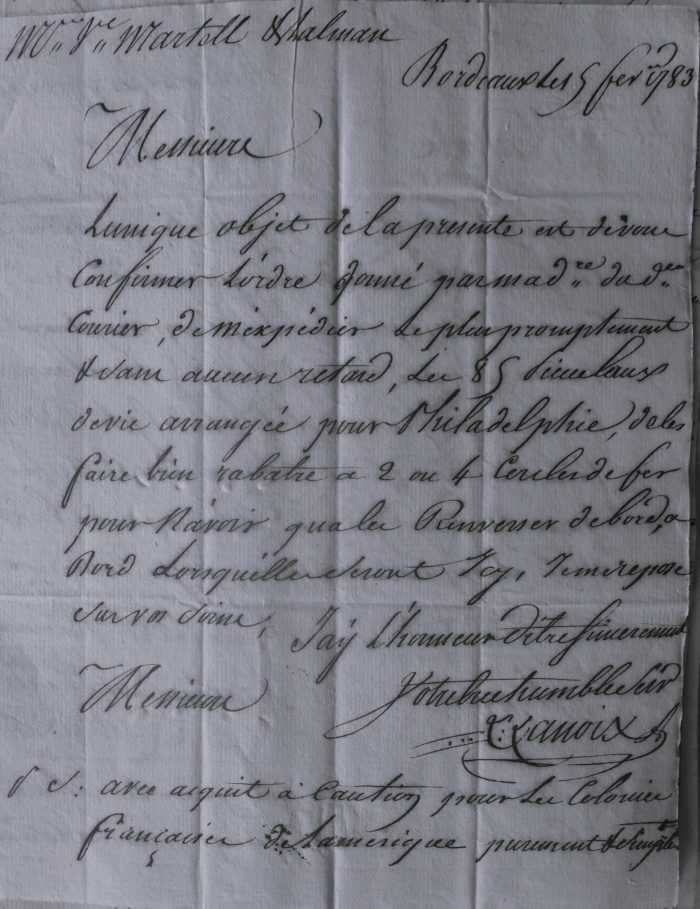 Mrs Vve Martell & Lalman
Bordeaux Les 5 fevr 1783
Messieurs
Lunique objet de la presente est de vous
Confirmer L'ordre donné par mad.re du d.er
Courier, de m'expédier Le plus promptement
& sans aucun retard, Les 85 Pieces Eaux
devie arrangée pour Philadelphie, de les
faire bien rabatre a 2 ou 4 Cercles de fer
pour N'avoir qua les Renverser de bord, a
Bord Lorsquelles seront Icy, Je me repose
sur vos soins, J'aÿ L'honneur d'être sincerement
Messieurs Votre tres humble serv
Lanoix
P S: avec aquit à Caution pour Les Colonies
françaises de Lamerique purement & simple